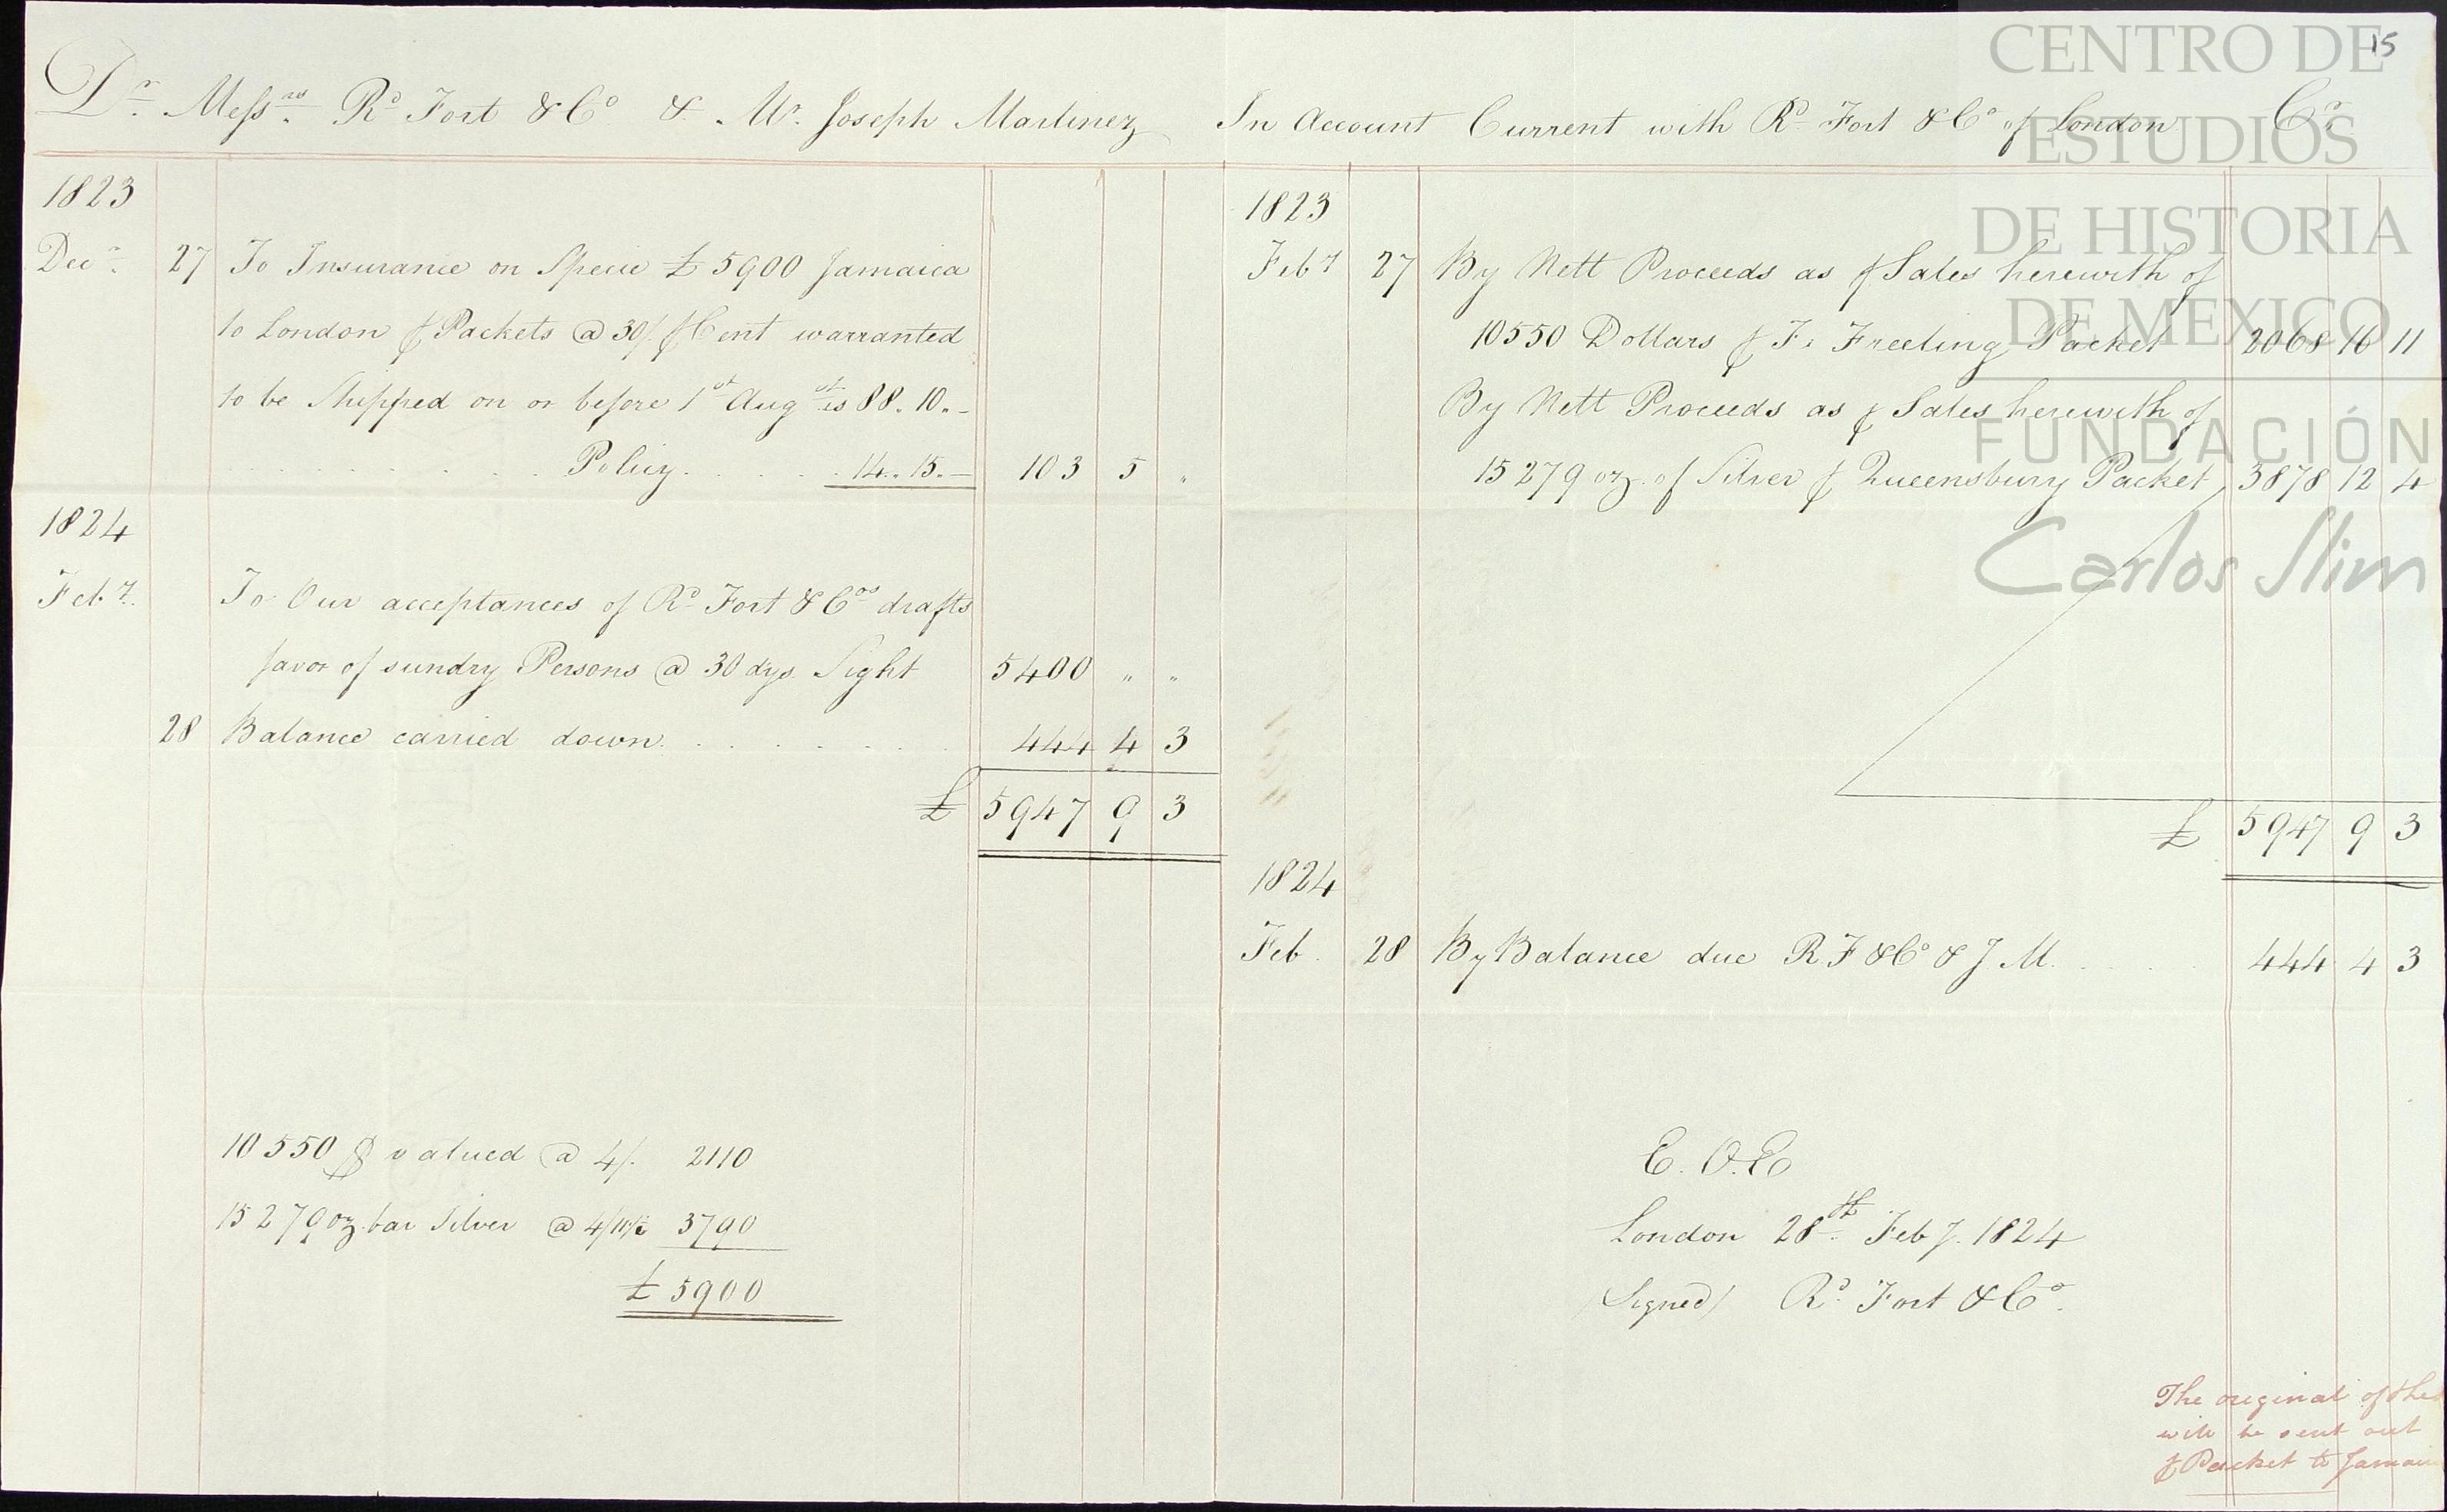 15
Dr. Messrs. Rd Fort & Co & Mr. Joseph Martinez In Account Current with Rd Fort & Co of London Cr.
1823
Decr. 27 To Insurance on Specie £5900 Jamaica
to London ⅌ Packets @ 30/. ⅌ Cent warranted
to be Shipped on or before 1st Augst is 88.10.-
Policy . . . . . 14..15.- 103 5 "
1824
Feby. To Our acceptances of Rd Fort & Cos drafts
favor of sundry Persons @ 30 dys. Sight 5400 " "
28 Balance carried down. . . . . . . . 444 4 3
£ 5947 9 3
10550 $ valued @ 4/. 2110
15279 oz. bar Silver @ 4/11½ 3790
£ 5900
1823
Feby 27 By Nett Proceeds as ⅌ Sales herewith of
10550 Dollars ⅌ F. Freeling Packet 2068 16 11
By Nett Proceeds as ⅌ Sales herewith of
15279 oz. of Silver ⅌ Queensbury Packet 3878 12 4
£ 5947 9 3
1824
Feb. 28 By Balance due R F & Co & J M. . . . . 444 4 3
E. O. E
London 28th Feby. 1824
(Signed) Rd. Fort & Co.
The original of the
will be sent out
⅌ Packet to Jamai
CENTRO DE
ESTUDIOS
DE HISTORIA
DE MEXICO
FUNDACIÓN
Carlos Slim